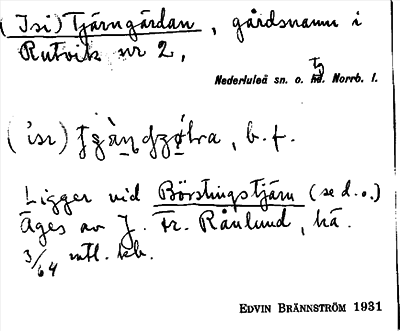 (Isi) Tjärngärdan, gårdsnamn i
Rutvik nr 2,
Nederluleå sn. o. tg Norrb. l.
b. f.
Ligger vid Börstingstjärn (se d. o.)
Äges av J. Fr. Rånlund, hå.
3/64 mtl. kb.
EDVIN BRÄNNSTRÖM 1931